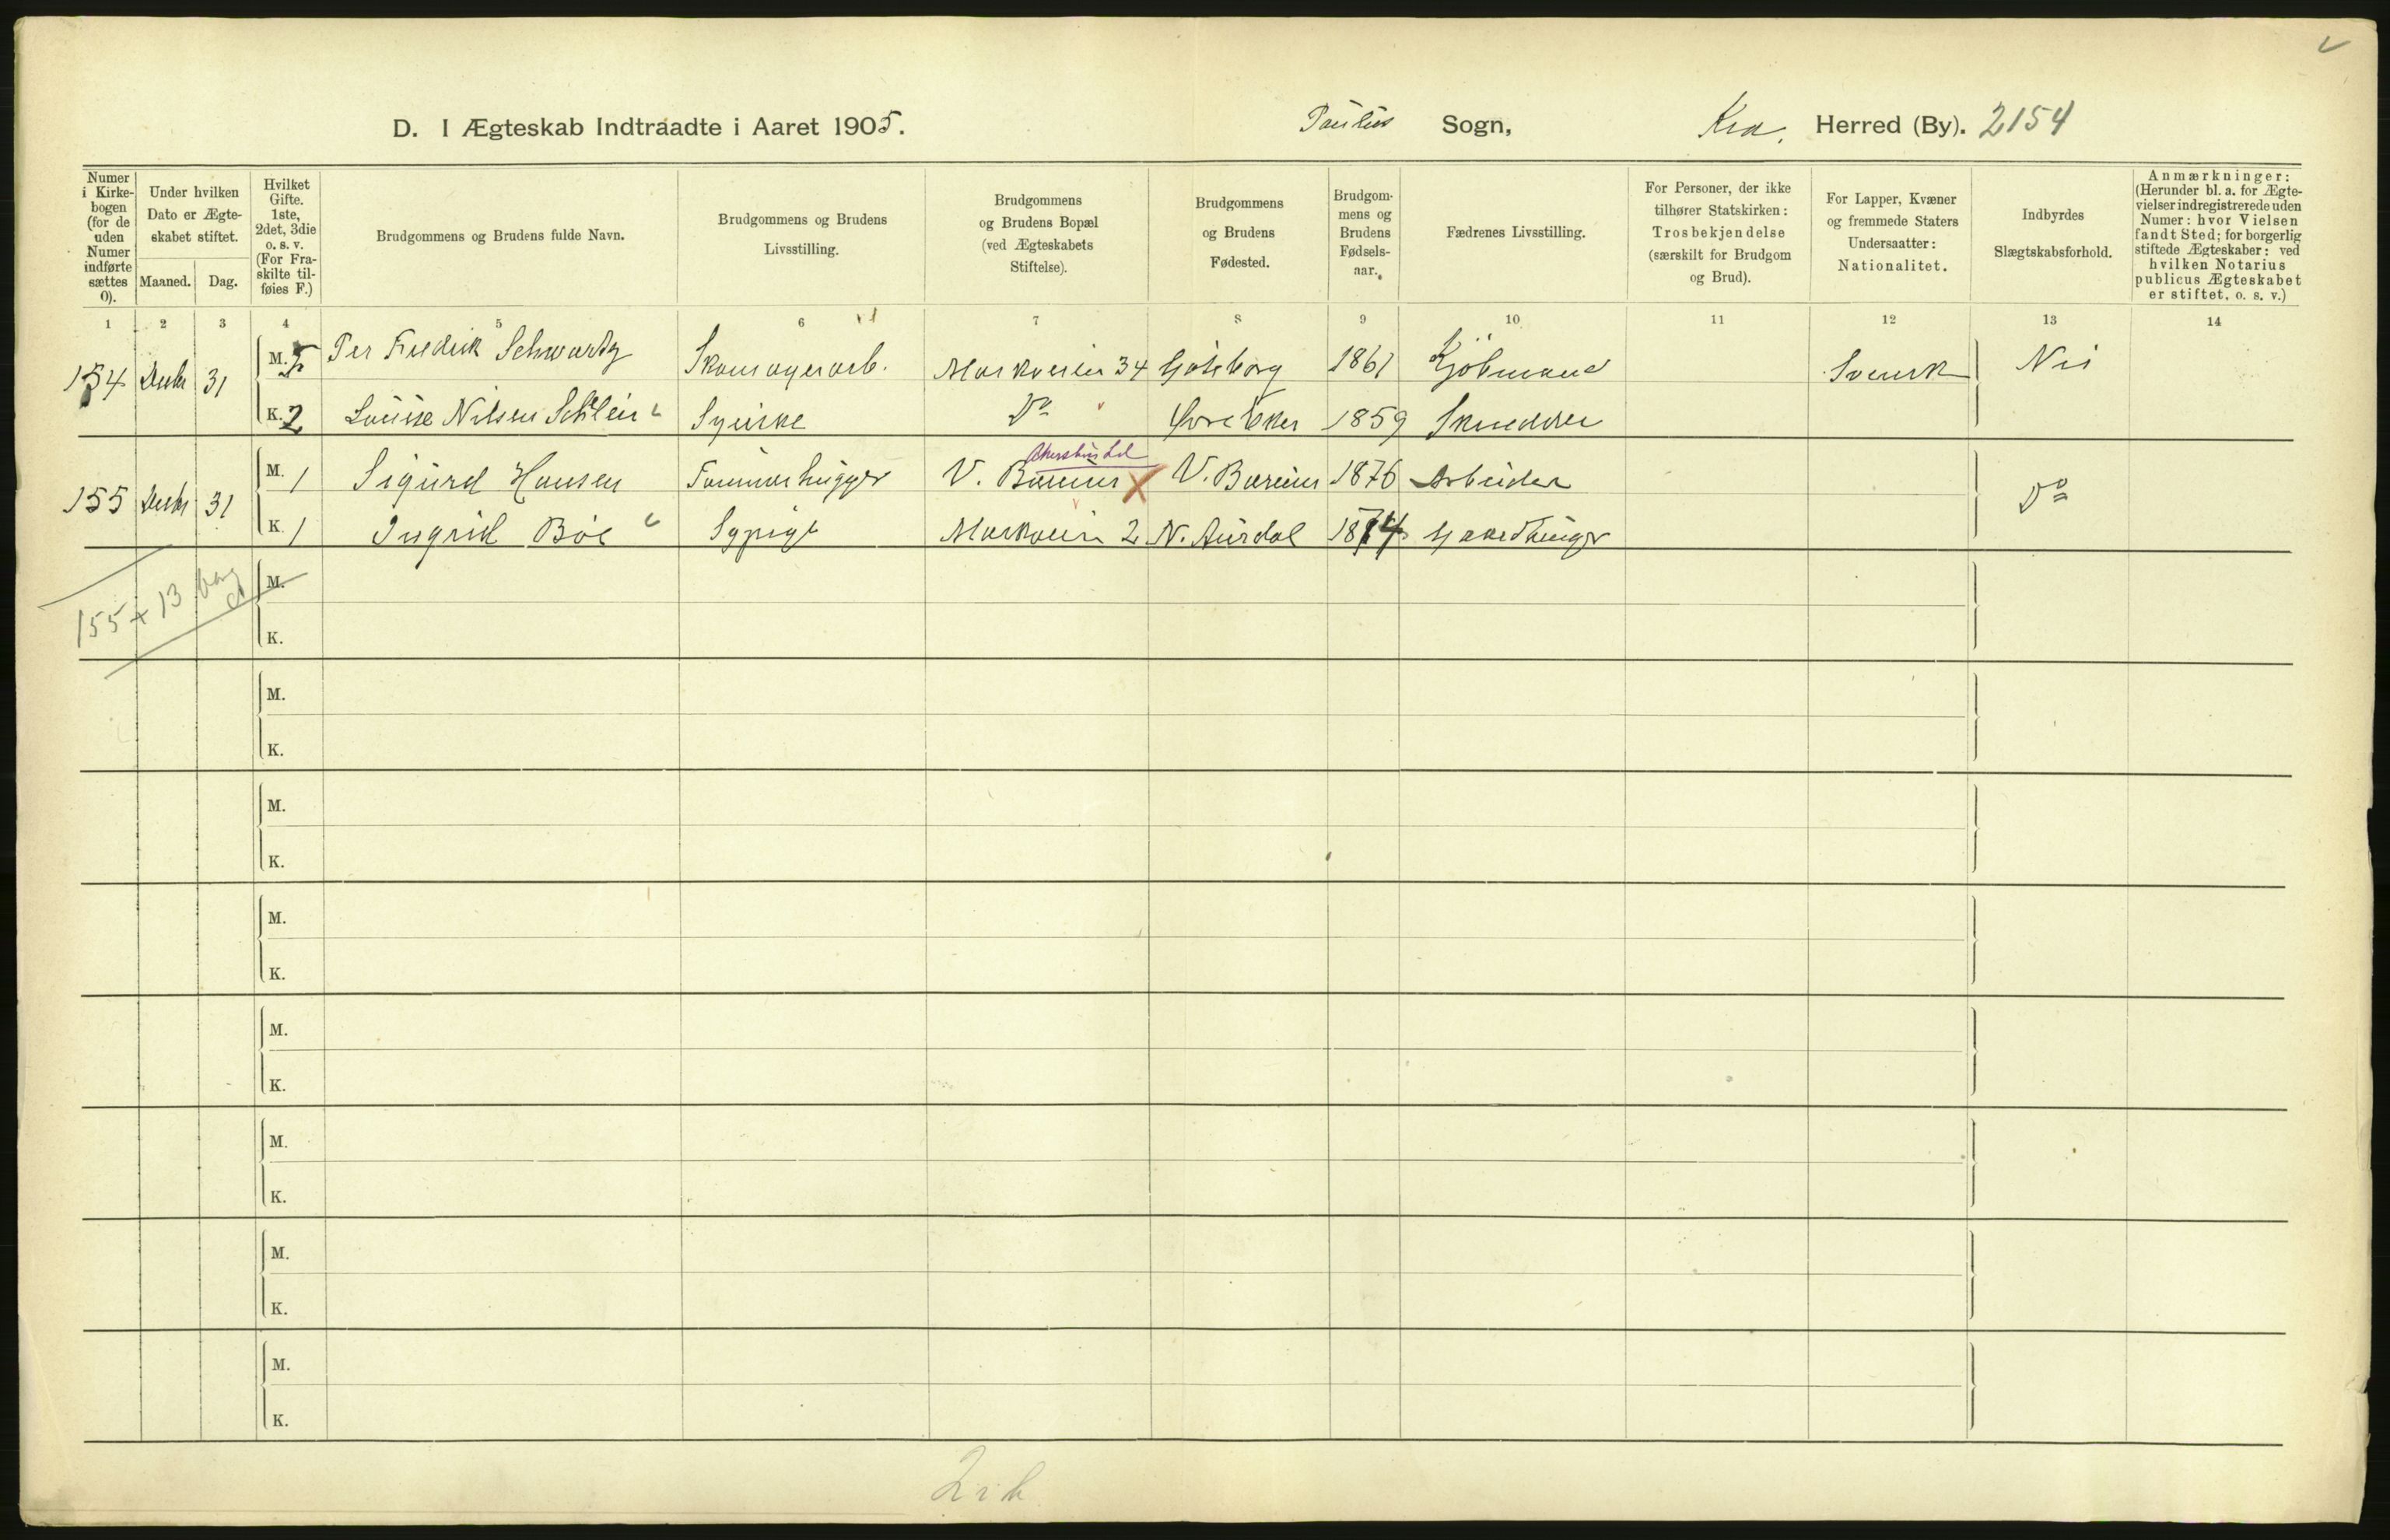 D. I Ægteskab Indtraadte i Aaret 1905. Paulus Sogn, Kra. Herred (By). 2154
Numer i Kirkebogen (for de uden Numer indførte sættes 0).
Under hvilken Dato er Ægteskabet stiftet.
Maaned. Dag.
Hvilket Gifte. 1ste, 2det, 3die o. s. v. (For Fraskilte tilføies F.)
Brudgommens og Brudens fulde Navn.
Brudgommens og Brudens Livsstilling.
Brudgommens og Brudens Bopæl (ved Ægteskabets Stiftelse).
Brudgommens og Brudens Fødested.
Brudgommens og Brudens Fødselsaar.
Fædrenes Livsstilling.
For Personer, der ikke tilhører Statskirken: Trosbekjendelse (særskilt for Brudgom og Brud).
For Lapper, Kvæner og fremmede Staters Undersaatter: Nationalitet.
Indbyrdes Slægtskabsforhold.
Anmærkninger: (Herunder bl. a. for Ægtevielser indregistrerede uden Numer: hvor Vielsen fandt Sted; for borgerlig stiftede Ægteskaber: ved hvilken Notarius publicus Ægteskabet er stiftet, o. s. v.)
1 2 3 4 5 6 7 8 9 10 11 12 13 14
154 Decbr 31 M. Per Fredrik Schwartz Skomagerarb. Markveien 34 Göteborg 1861 Kjøbmand Svensk Nei
K. 2 Louise Nilsen Schlein Syerske Do Øvre Eker 1859 Skredder
Akershus
155 Decbr 31 M. 1 Sigurd Hansen Tømmerhugger V. Bærum X V. Bærum 1876 Arbeider Do
K. 1 Ingrid Böe Sypige Markvein 2 N. Aurdal 1874
155 + 13
M.
K.
M.
K.
M.
K.
M.
K.
M.
K.
M.
K.
M.
K.
M.
K.